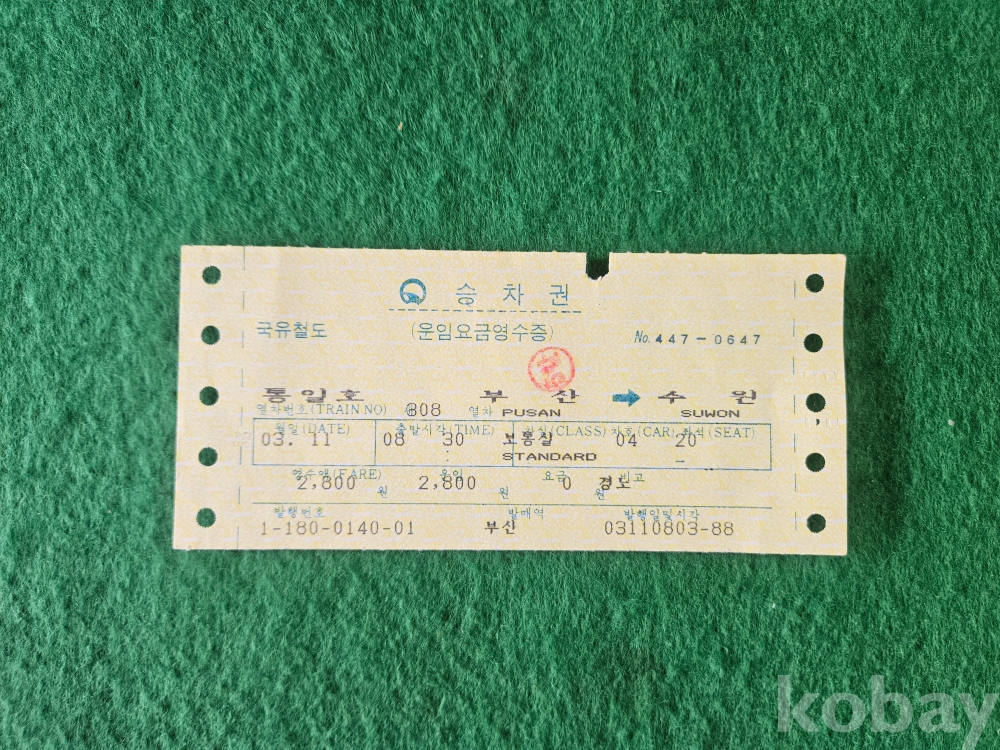 승차권
국유철도 (운임요금영수증) No. 447-0647
통일호 부산 → 수원
열차번호(TRAIN NO) 808 열차 PUSAN SUWON
월일(DATE) 출발시각(TIME) 차실(CLASS) 차호(CAR) 좌석(SEAT)
03. 11 08 : 30 보통실 04 20
STANDARD –
영수액(FARE) 운임 요금 비고
2,800 원 2,800 원 0 원 경로
발행번호 발매역 발행일및시각
1-180-0140-01 부산 03110803-88
kobay